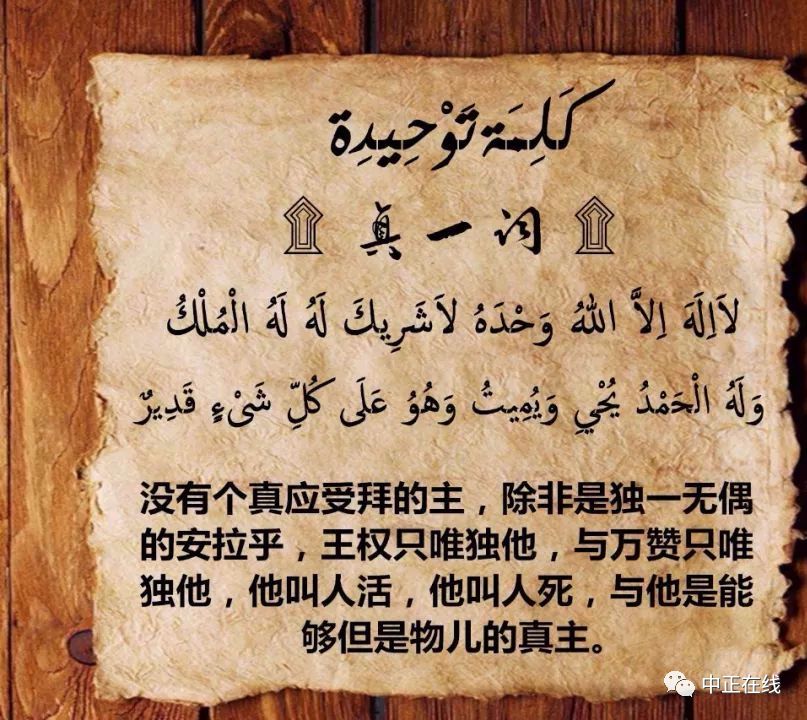 كَلِمَة تَوْحِيدِة
真一词
لاَاِلَهَ اِلاَّ اللهُ وَحْدَهُ لاَشَرِيكَ لَهُ لَهُ الْمُلْكُ
وَلَهُ الْحَمْدُ يُحْيِ وَيُمِيتُ وَهُوُ عَلَى كُلِّ شَىْءٍ قَدِيرٌ
没有个真应受拜的主，除非是独一无偶
的安拉乎，王权只唯独他，与万赞只唯
独他，他叫人活，他叫人死，与他是能
够但是物儿的真主。
中正在线